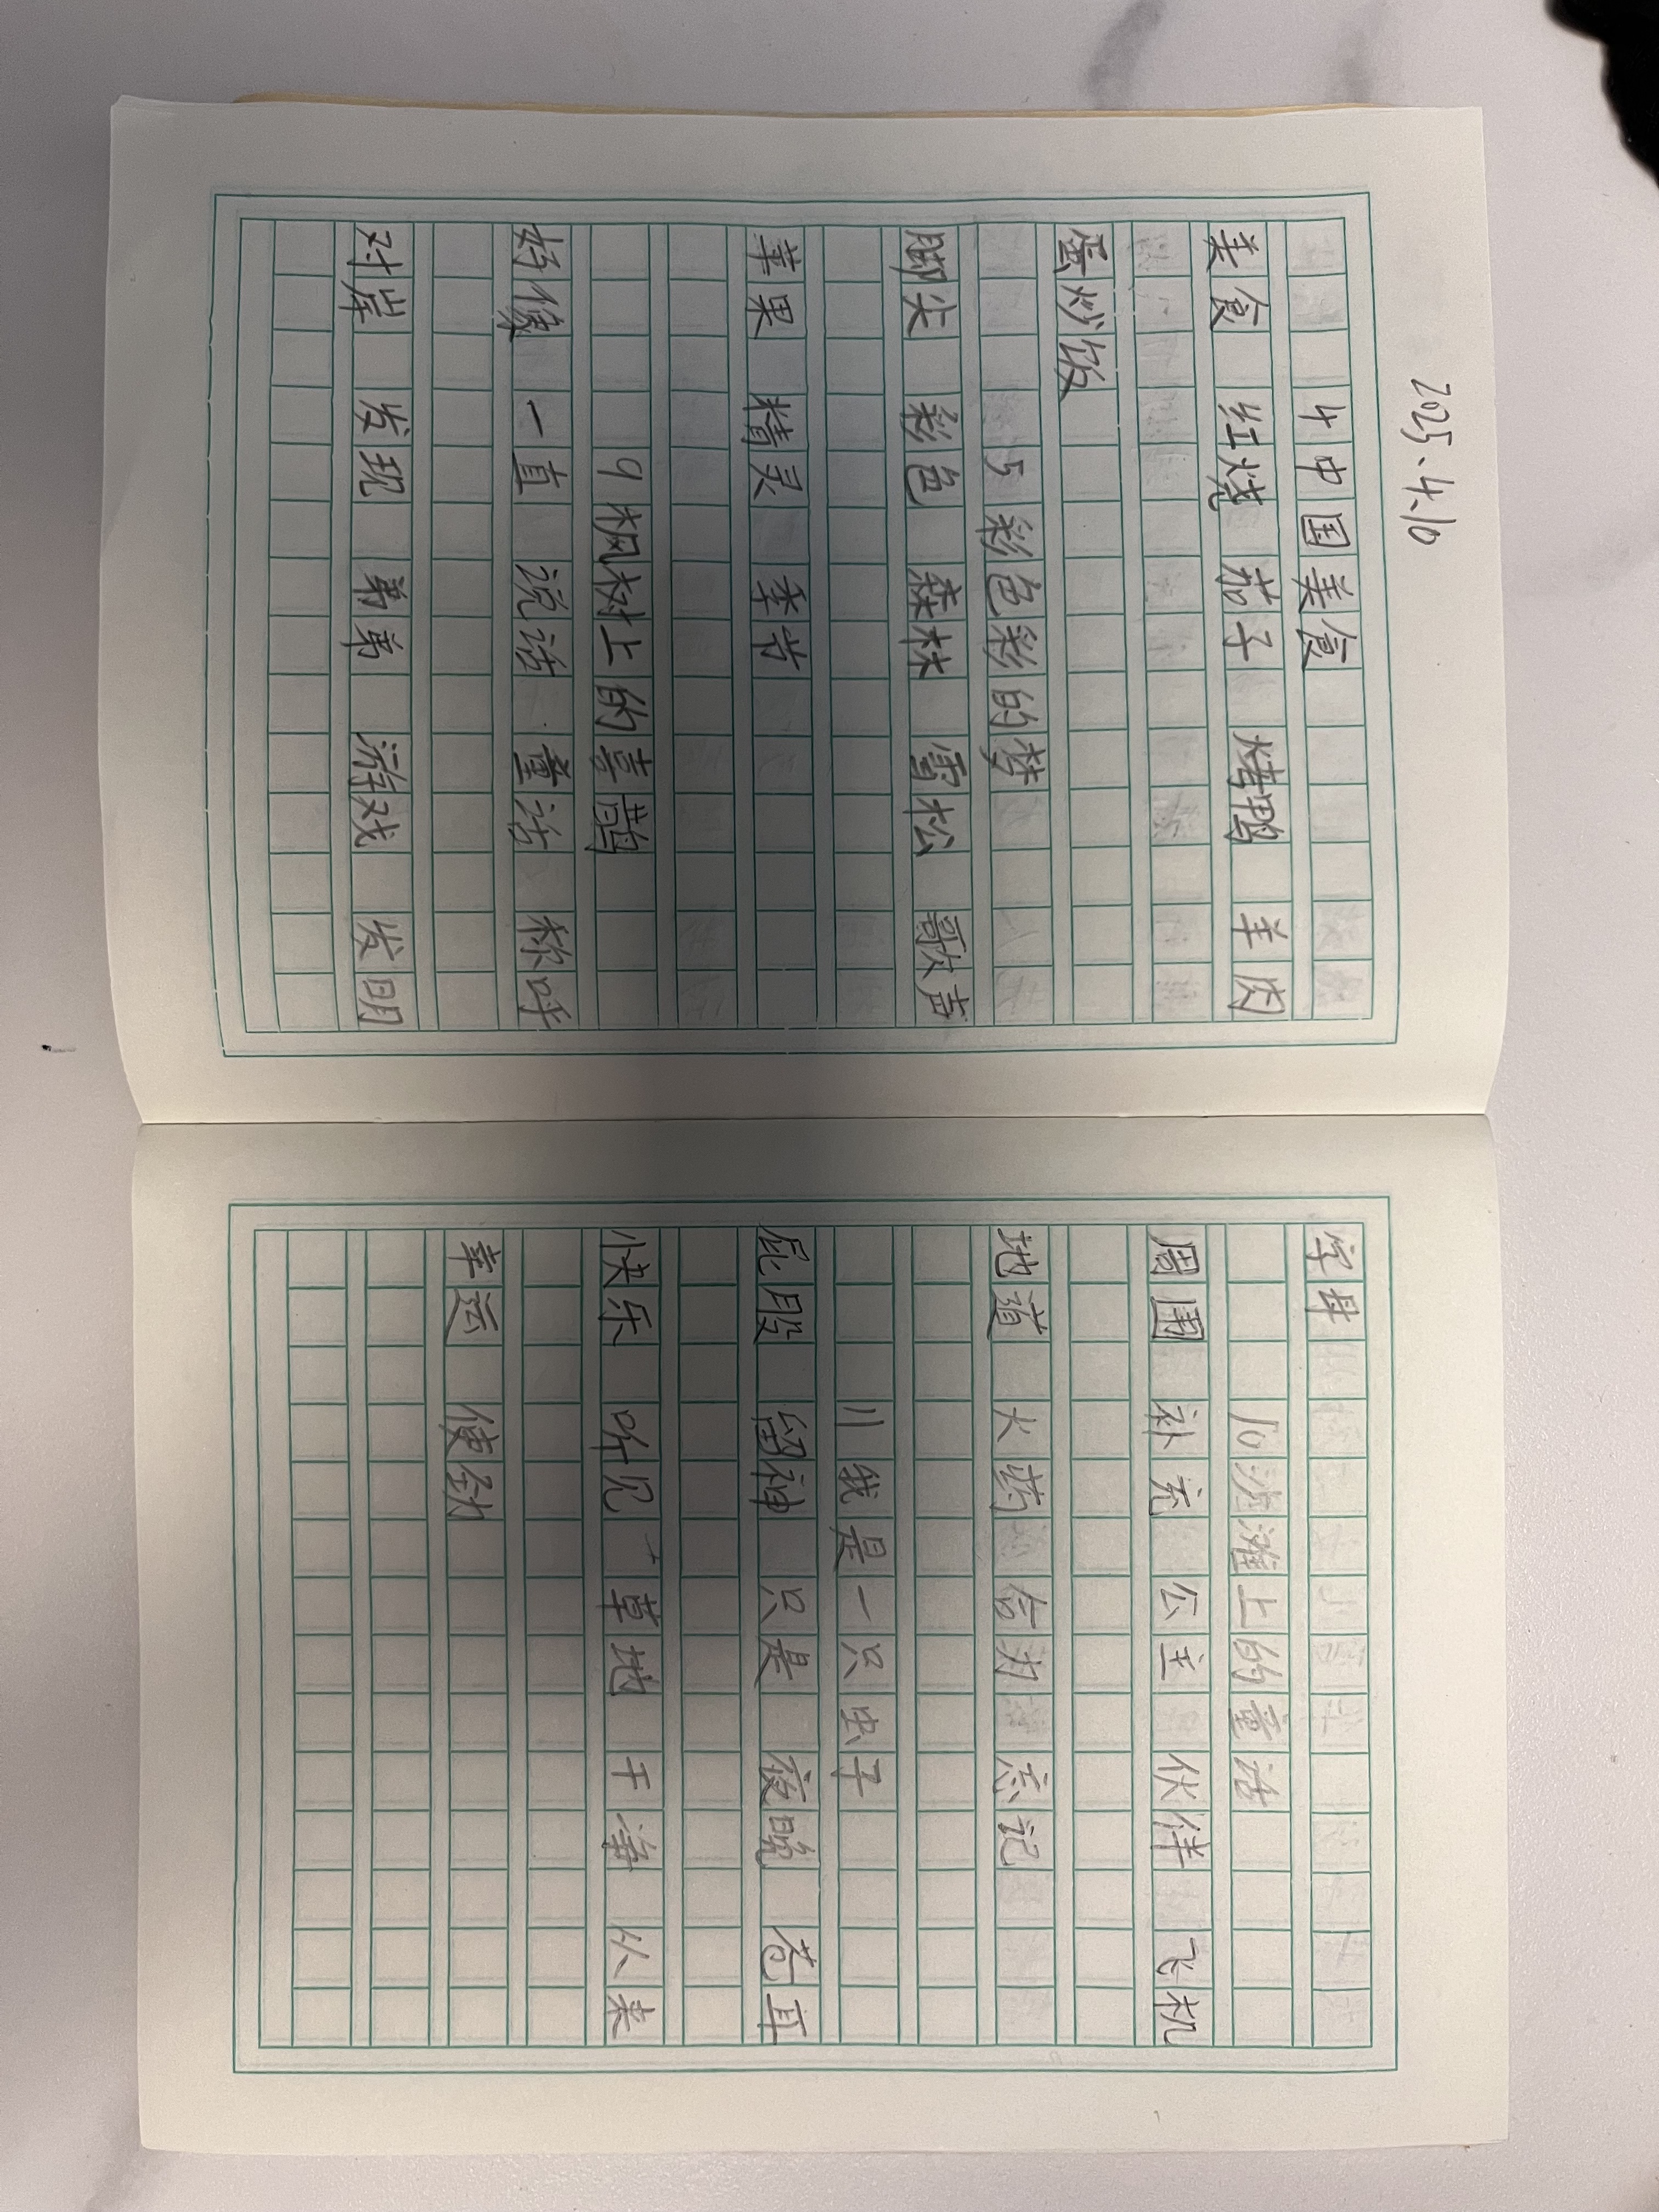 2025.4.10
4中国美食
美食 红烧 茄子 烤鸭 羊肉
蛋炒饭
5彩色彩的梦
脚尖 彩色 森林 雪松 歌声
苹果 精灵 季节
9枫树上的喜鹊
好像 一直 说话 童话 称呼
对岸 发现 弟弟 游戏 发明
字母
10沙滩上的童话
周围 补充 公主 伙伴 飞机
地道 火药 合力 忘记
11我是一只虫子
屁股 留神 只是 夜晚 苍耳
快乐 听见 草地 干净 从来
幸运 使劲